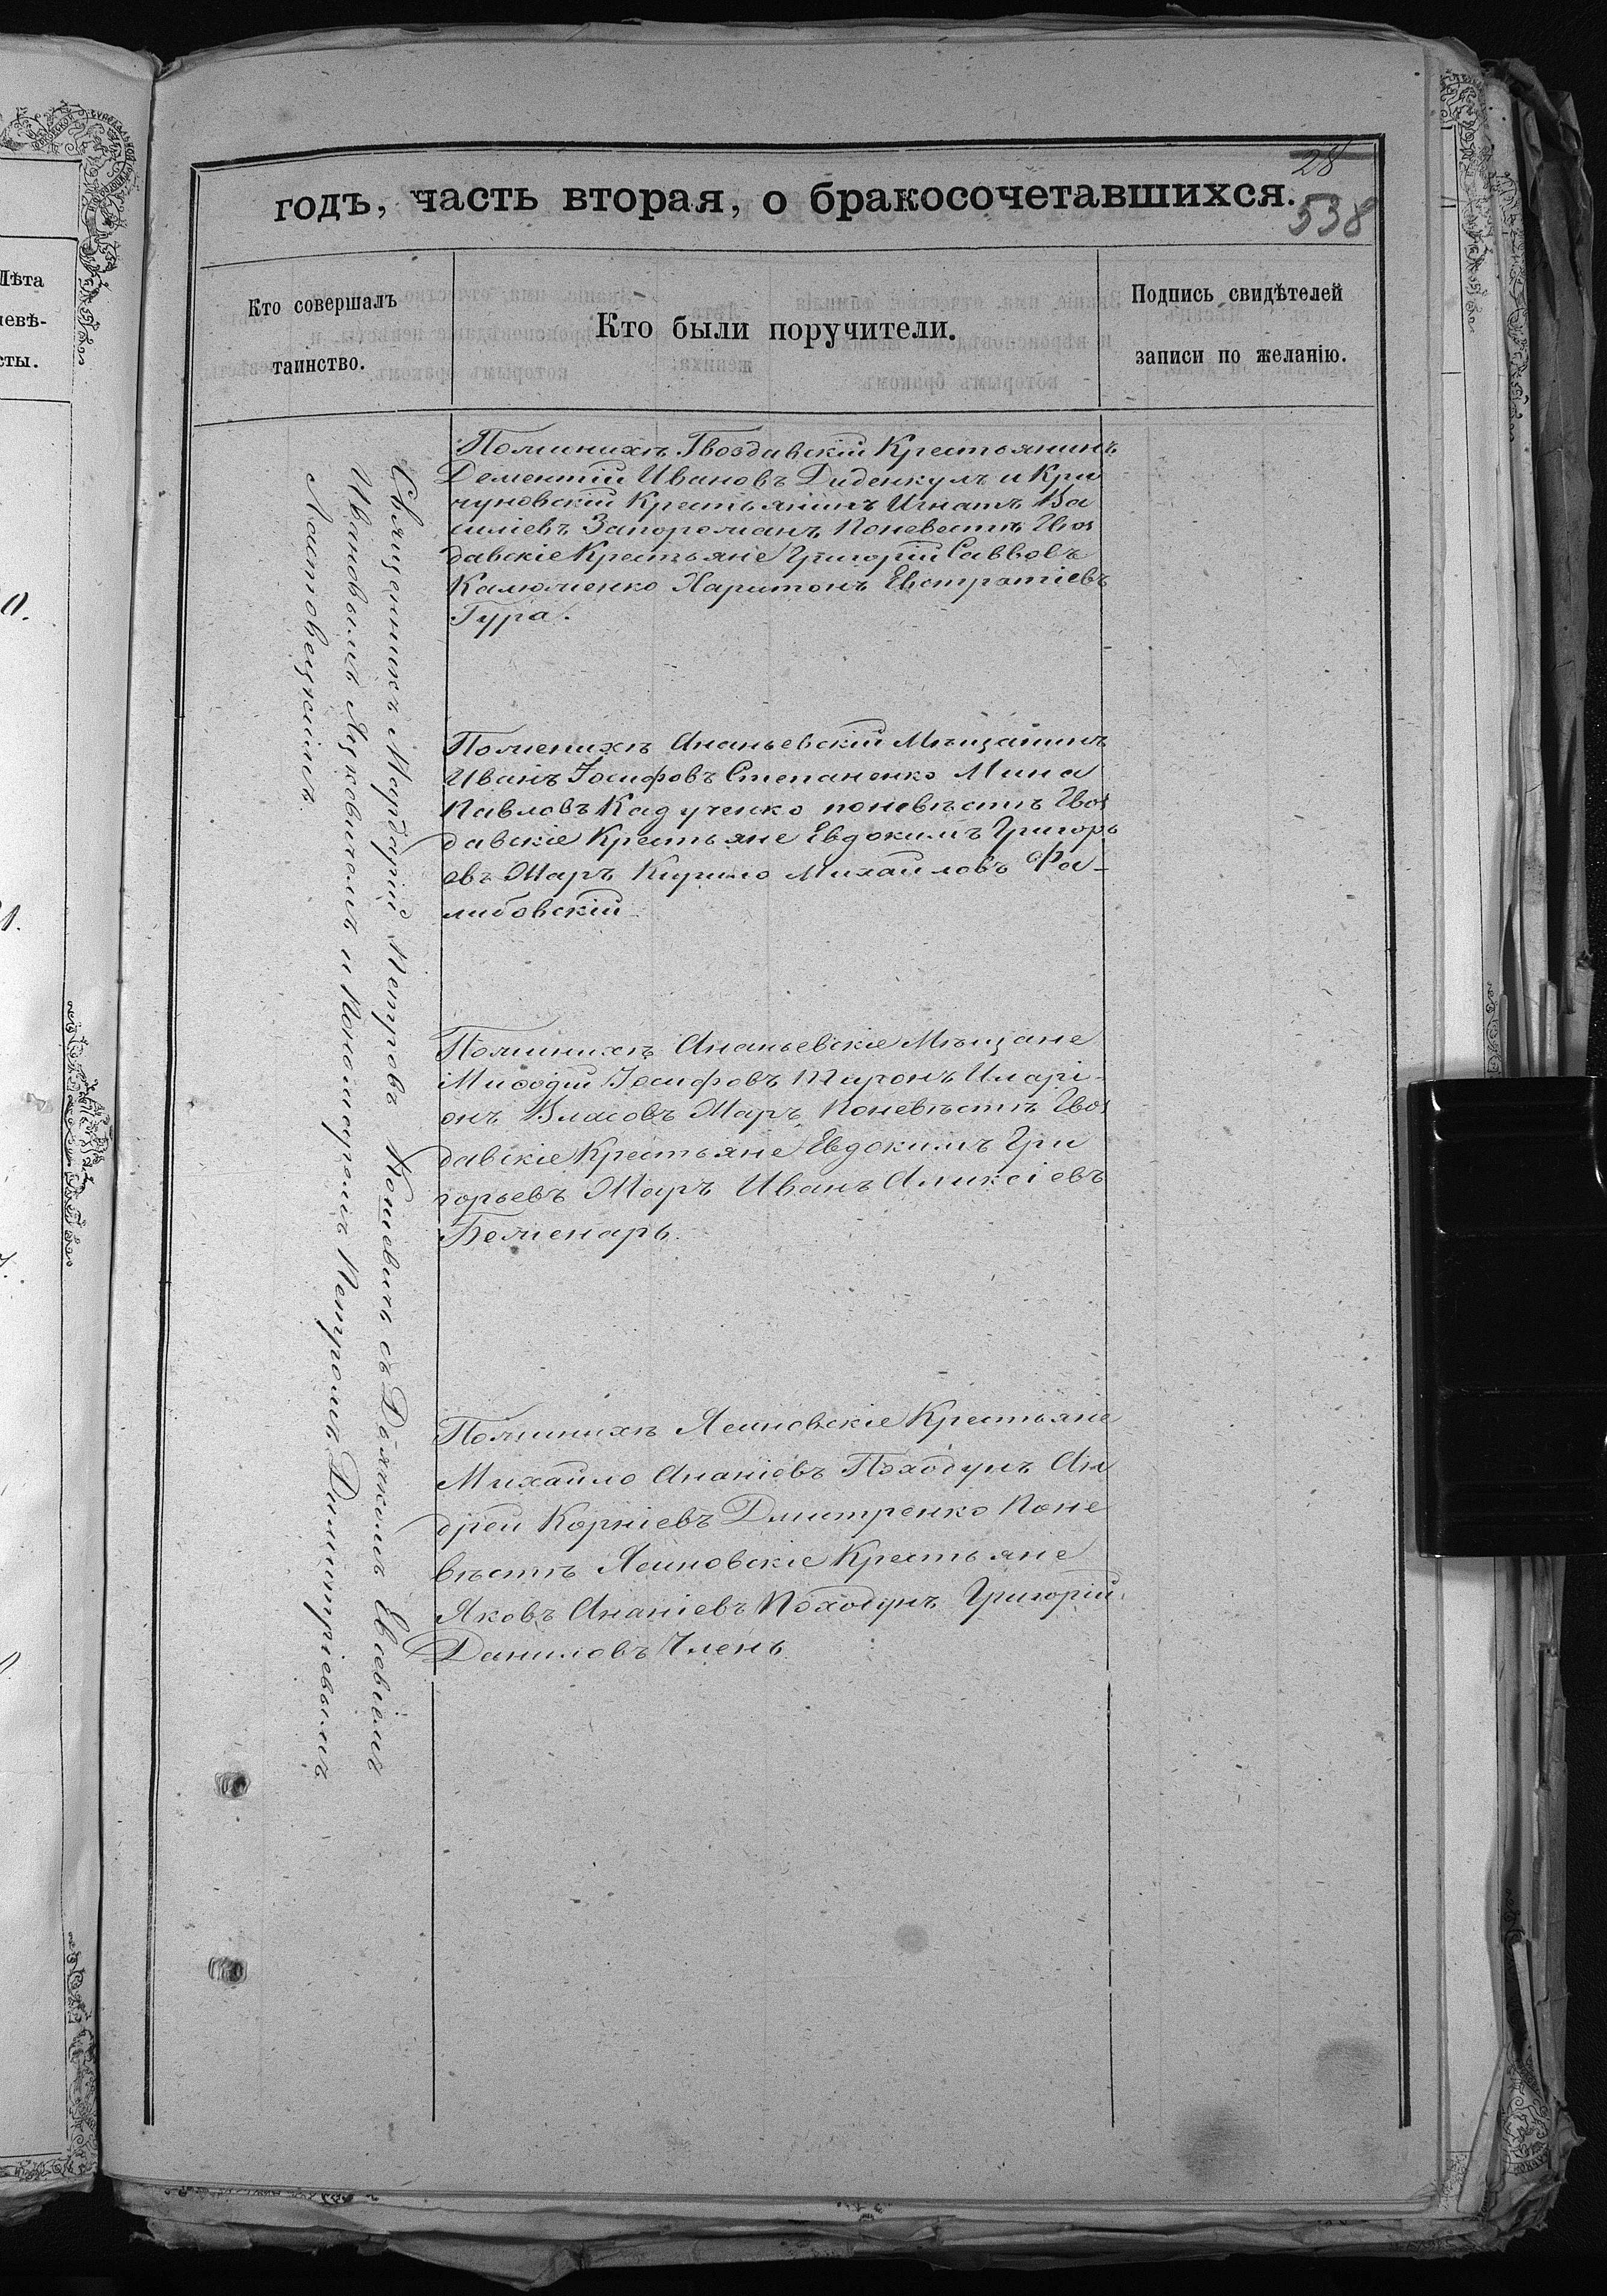 28
годъ, часть вторая, о бракосочетавшихся.
538
Лѣта
невѣ-
сты.
Кто совершалъ
таинство.
Кто были поручители.
Подпись свидѣтелей
записи по желанію.
Священникъ Маркъ Петровъ Кошевичъ съ Дьякомъ Евсевіемъ
Ивановымъ Яцковичемъ и Пономаремъ Петромъ Димитріевымъ
Лотовецкимъ
Пожинихѣ Гвоздавскій Крестьянинъ
Дементій Ивановъ Диденкулъ и Кри
чуновскій Крестьянинъ Игнатъ Ва
силіевъ Запорожанъ Поневестѣ Гвоз
давскіе Крестьяне Григорій Саввовъ
Калюжненко Харитонъ Евстратіевъ
Гура.
Поженихѣ Ананьевскій Мѣщанинъ
Иванъ Іосифовъ Степаненко Мина
Павловъ Кадученко поневѣстѣ Гвоз
давскіе Крестьяне Евдокимъ Григорь
евъ Маръ Кирило Михайловъ Фа-
либовскій
Пожинихѣ Ананьевскіе Мѣщане
Миѳодій Іосифовъ Тиронъ Иларі-
онъ Власовъ Маръ Поневѣстѣ Гвоз
давскіе Крестьяне Евдокимъ Гри
горьевъ Маръ Иванъ Аликсіевъ
Беженарь.
Пожинихѣ Ясиновскіе Крестьяне
Михайло Ананіевъ Походунъ Ан
дрей Корніевъ Дмитренко Поне
вѣстѣ Ясиновскіе Крестьяне
Яковъ Ананіевъ Походунъ Григорій
Даниловъ Членъ